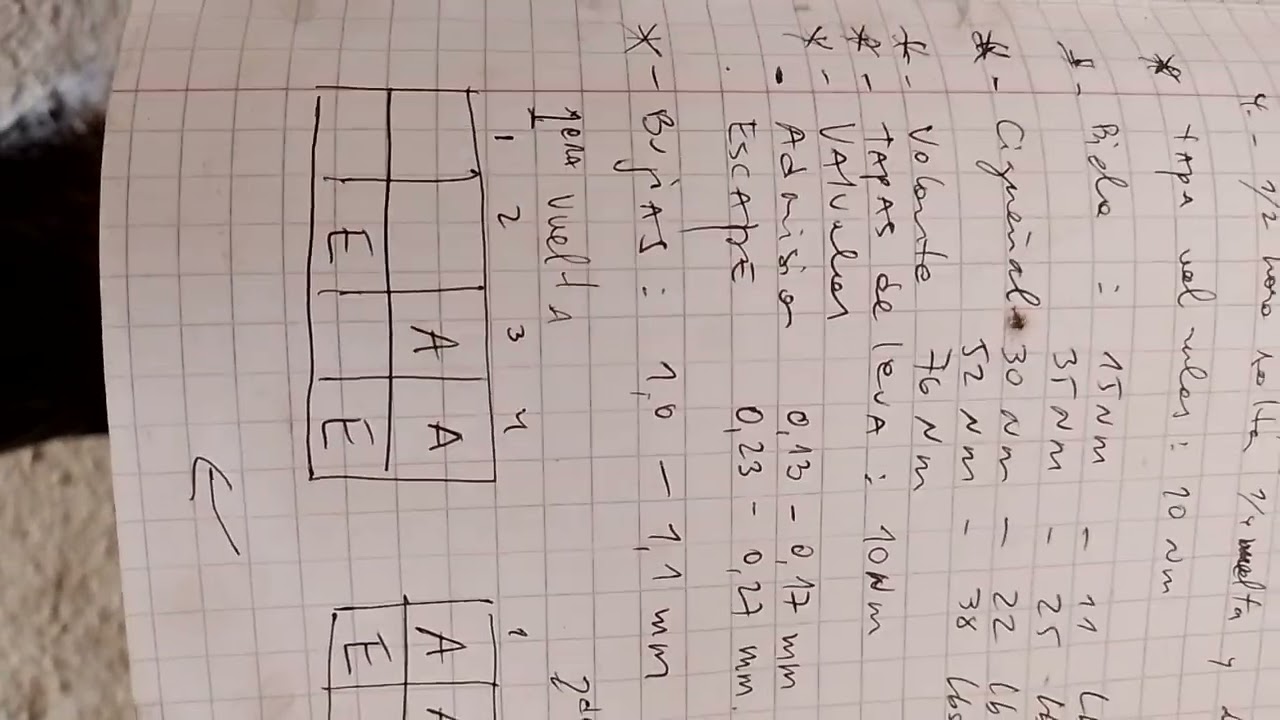 1/2 hora volta 1/4 vuelta y
* TAPA valvulas: 10 Nm
*- Biela : 15 Nm = 11 Lb
35 Nm - 25 - Lb
*- Cigueñal 30 Nm - 22 Lb
52 Nm - 38 Lbs
*- Volante 76 Nm
*- TAPAS de levA : 10 Nm
*- VAlvulas
• Admision 0,13 - 0,17 mm
. ESCApE 0,23 - 0,27 mm.
*- BujiAS : 1,0 - 1,1 mm
1era vueltA 2d
1 2 3 4 1
A A A A
E E E